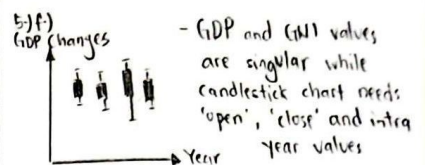 5-) f-)
GDP Changes
Year
- GDP and GNI values
are singular while
candlestick chart needs
'open', 'close' and intra
year values